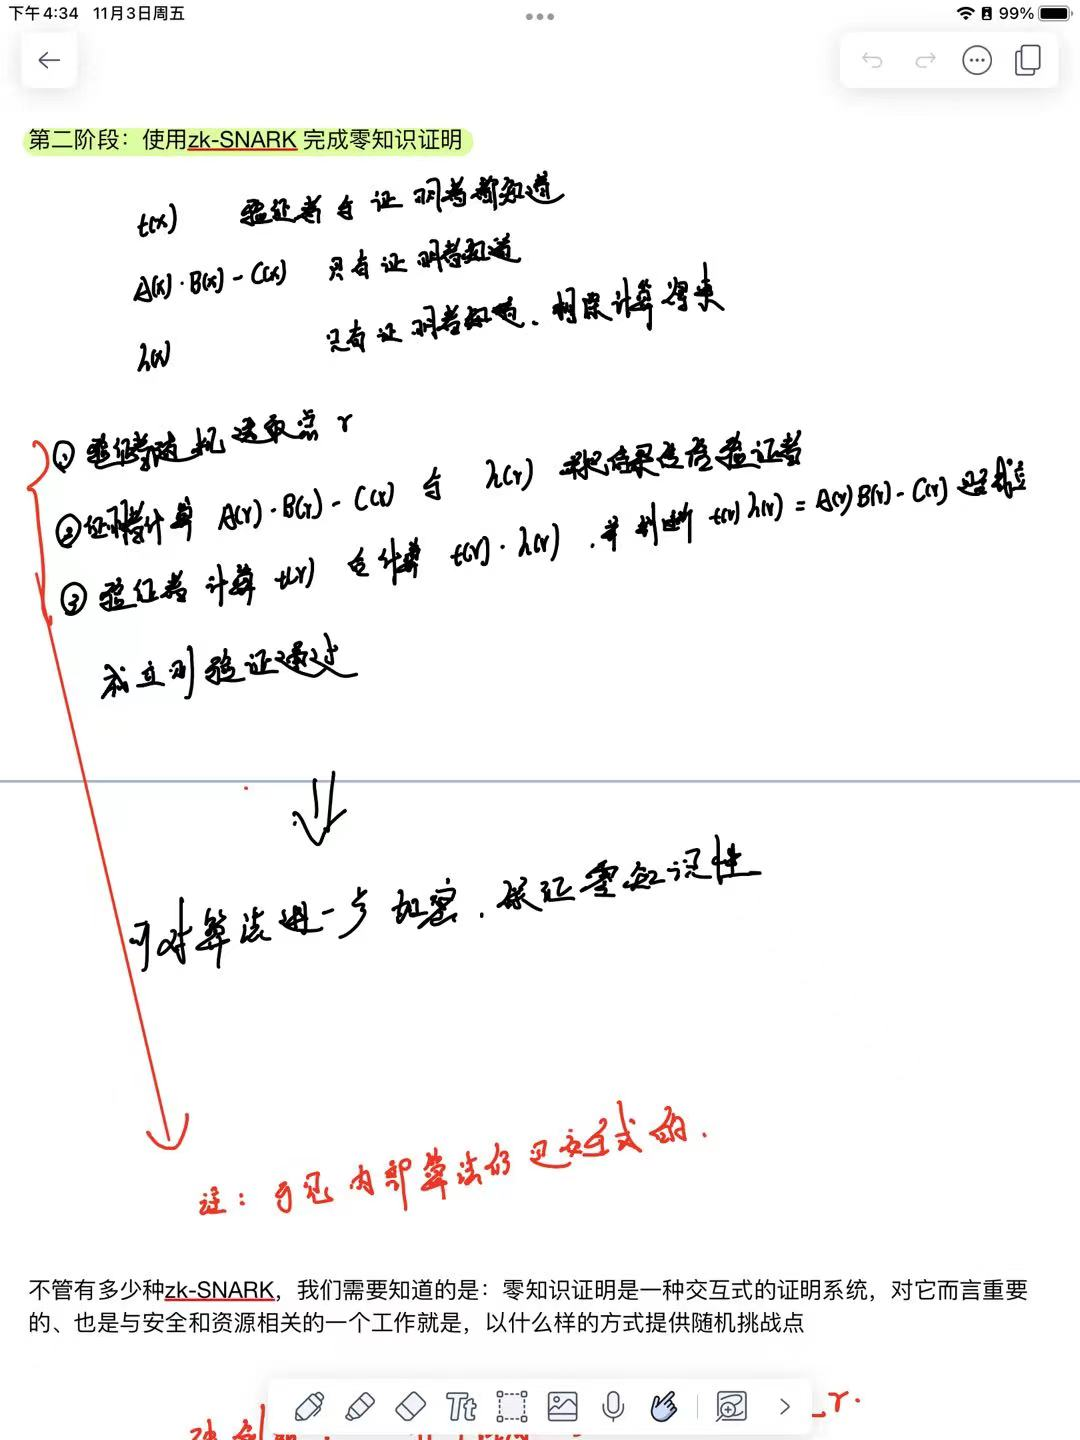 下午4:34 11月3日周五
99%
第二阶段：使用zk-SNARK 完成零知识证明
t(x) 验证者与证明者都知道
A(x)·B(x)-C(x) 只有证明者知道
h(x) 只有证明者知道，相除计算得来
① 验证者随机选取点 r
② 证明者计算 A(r)·B(r)-C(r) 与 h(r) 并把结果告诉验证者
③ 验证者计算 t(r) 在计算 t(r)·h(r)，并判断 t(r)h(r)=A(r)B(r)-C(r) 是否成立
成立则验证通过
可对算法进一步加密，保证零知识性
注：可见内部算法仍是交互式的.
不管有多少种zk-SNARK，我们需要知道的是：零知识证明是一种交互式的证明系统，对它而言重要
的、也是与安全和资源相关的一个工作就是，以什么样的方式提供随机挑战点
Tt
r.